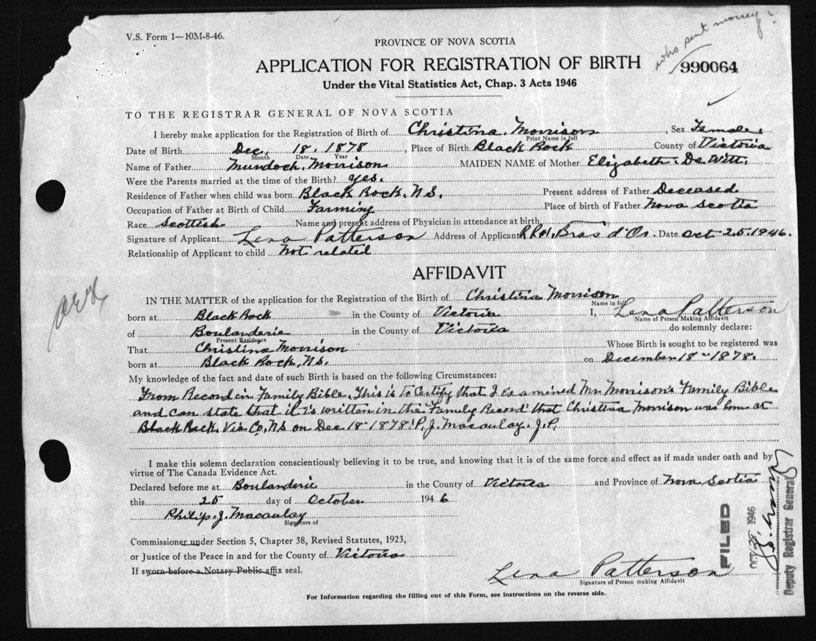 who sent money?
V.S. Form 1—10M-8-46.
PROVINCE OF NOVA SCOTIA
APPLICATION FOR REGISTRATION OF BIRTH
990064
Under the Vital Statistics Act, Chap. 3 Acts 1946
TO THE REGISTRAR GENERAL OF NOVA SCOTIA
I hereby make application for the Registration of Birth of Christina Morrison, Sex Female
Print Name in full
Date of Birth Dec. 18. 1878, Place of Birth Black Rock County of Victoria
Month Date Year
Name of Father Murdoch Morrison MAIDEN NAME of Mother Elizabeth De Witt.
Were the Parents married at the time of the Birth? yes.
Residence of Father when child was born Black Rock, N.S. Present address of Father Deceased
Occupation of Father at Birth of Child Farming Place of birth of Father Nova Scotia
Race Scottish Name and present address of Physician in attendance at birth
Signature of Applicant Lena Patterson Address of Applicant Bras d'Or. Date Oct 25-1946.
Relationship of Applicant to child Not related
AFFIDAVIT
IN THE MATTER of the application for the Registration of the Birth of Christina Morrison
Name in full
born at Black Rock in the County of Victoria I, Lena Patterson
Name of Person Making Affidavit
of Boulanderie in the County of Victoria do solemnly declare:
Present Residence
That Christina Morrison Whose Birth is sought to be registered was
born at Black Rock, N.S. on December 18-1878.
My knowledge of the fact and date of such Birth is based on the following Circumstances:
From Record in Family Bible. This is to Certify that I Examined Mr. Morrison's Family Bible
and can state that it is written in the Family Record that Christina Morrison was born at
Black Rock, Vic Co, N.S on Dec 18-1878. P. J. Macaulay. J.P.
I make this solemn declaration conscientiously believing it to be true, and knowing that it is of the same force and effect as if made under oath and by
virtue of The Canada Evidence Act.
Declared before me at Boulanderie in the County of Victoria and Province of Nova Scotia
this 25 day of October 1946
Philip J. Macaulay
Signature of
Commissioner under Section 5, Chapter 38, Revised Statutes, 1923,
or Justice of the Peace in and for the County of Victoria
If sworn before a Notary Public affix seal.
Lena Patterson
Signature of Person making Affidavit
For Information regarding the filling out of this Form, see instructions on the reverse side.
FILED
1946
Deputy Registrar General